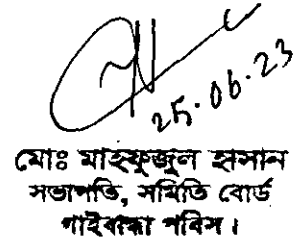 25.06.23
মোঃ মাহফুজুল হাসান
সভাপতি, সমিতি বোর্ড
গাইবান্ধা পবিস।